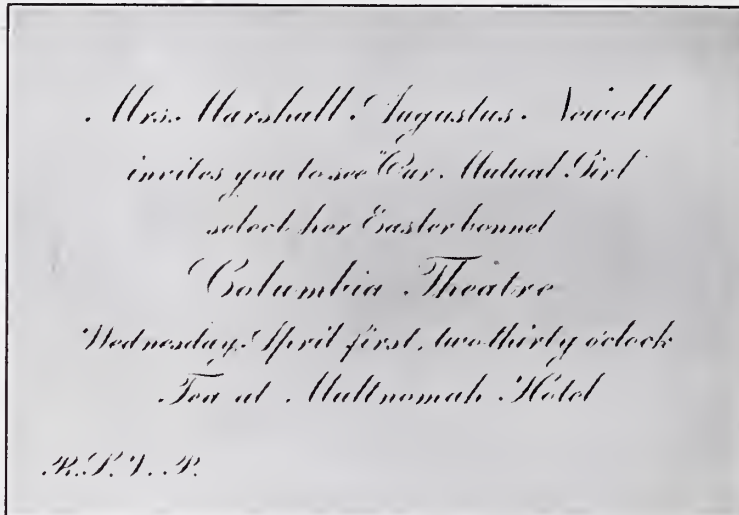 Mrs. Marshall Augustus Newell
invites you to see "Our Mutual Girl"
select her Easter bonnet
Columbia Theatre
Wednesday, April first, two-thirty o'clock
Tea at Multnomah Hotel
R.S.V.P.